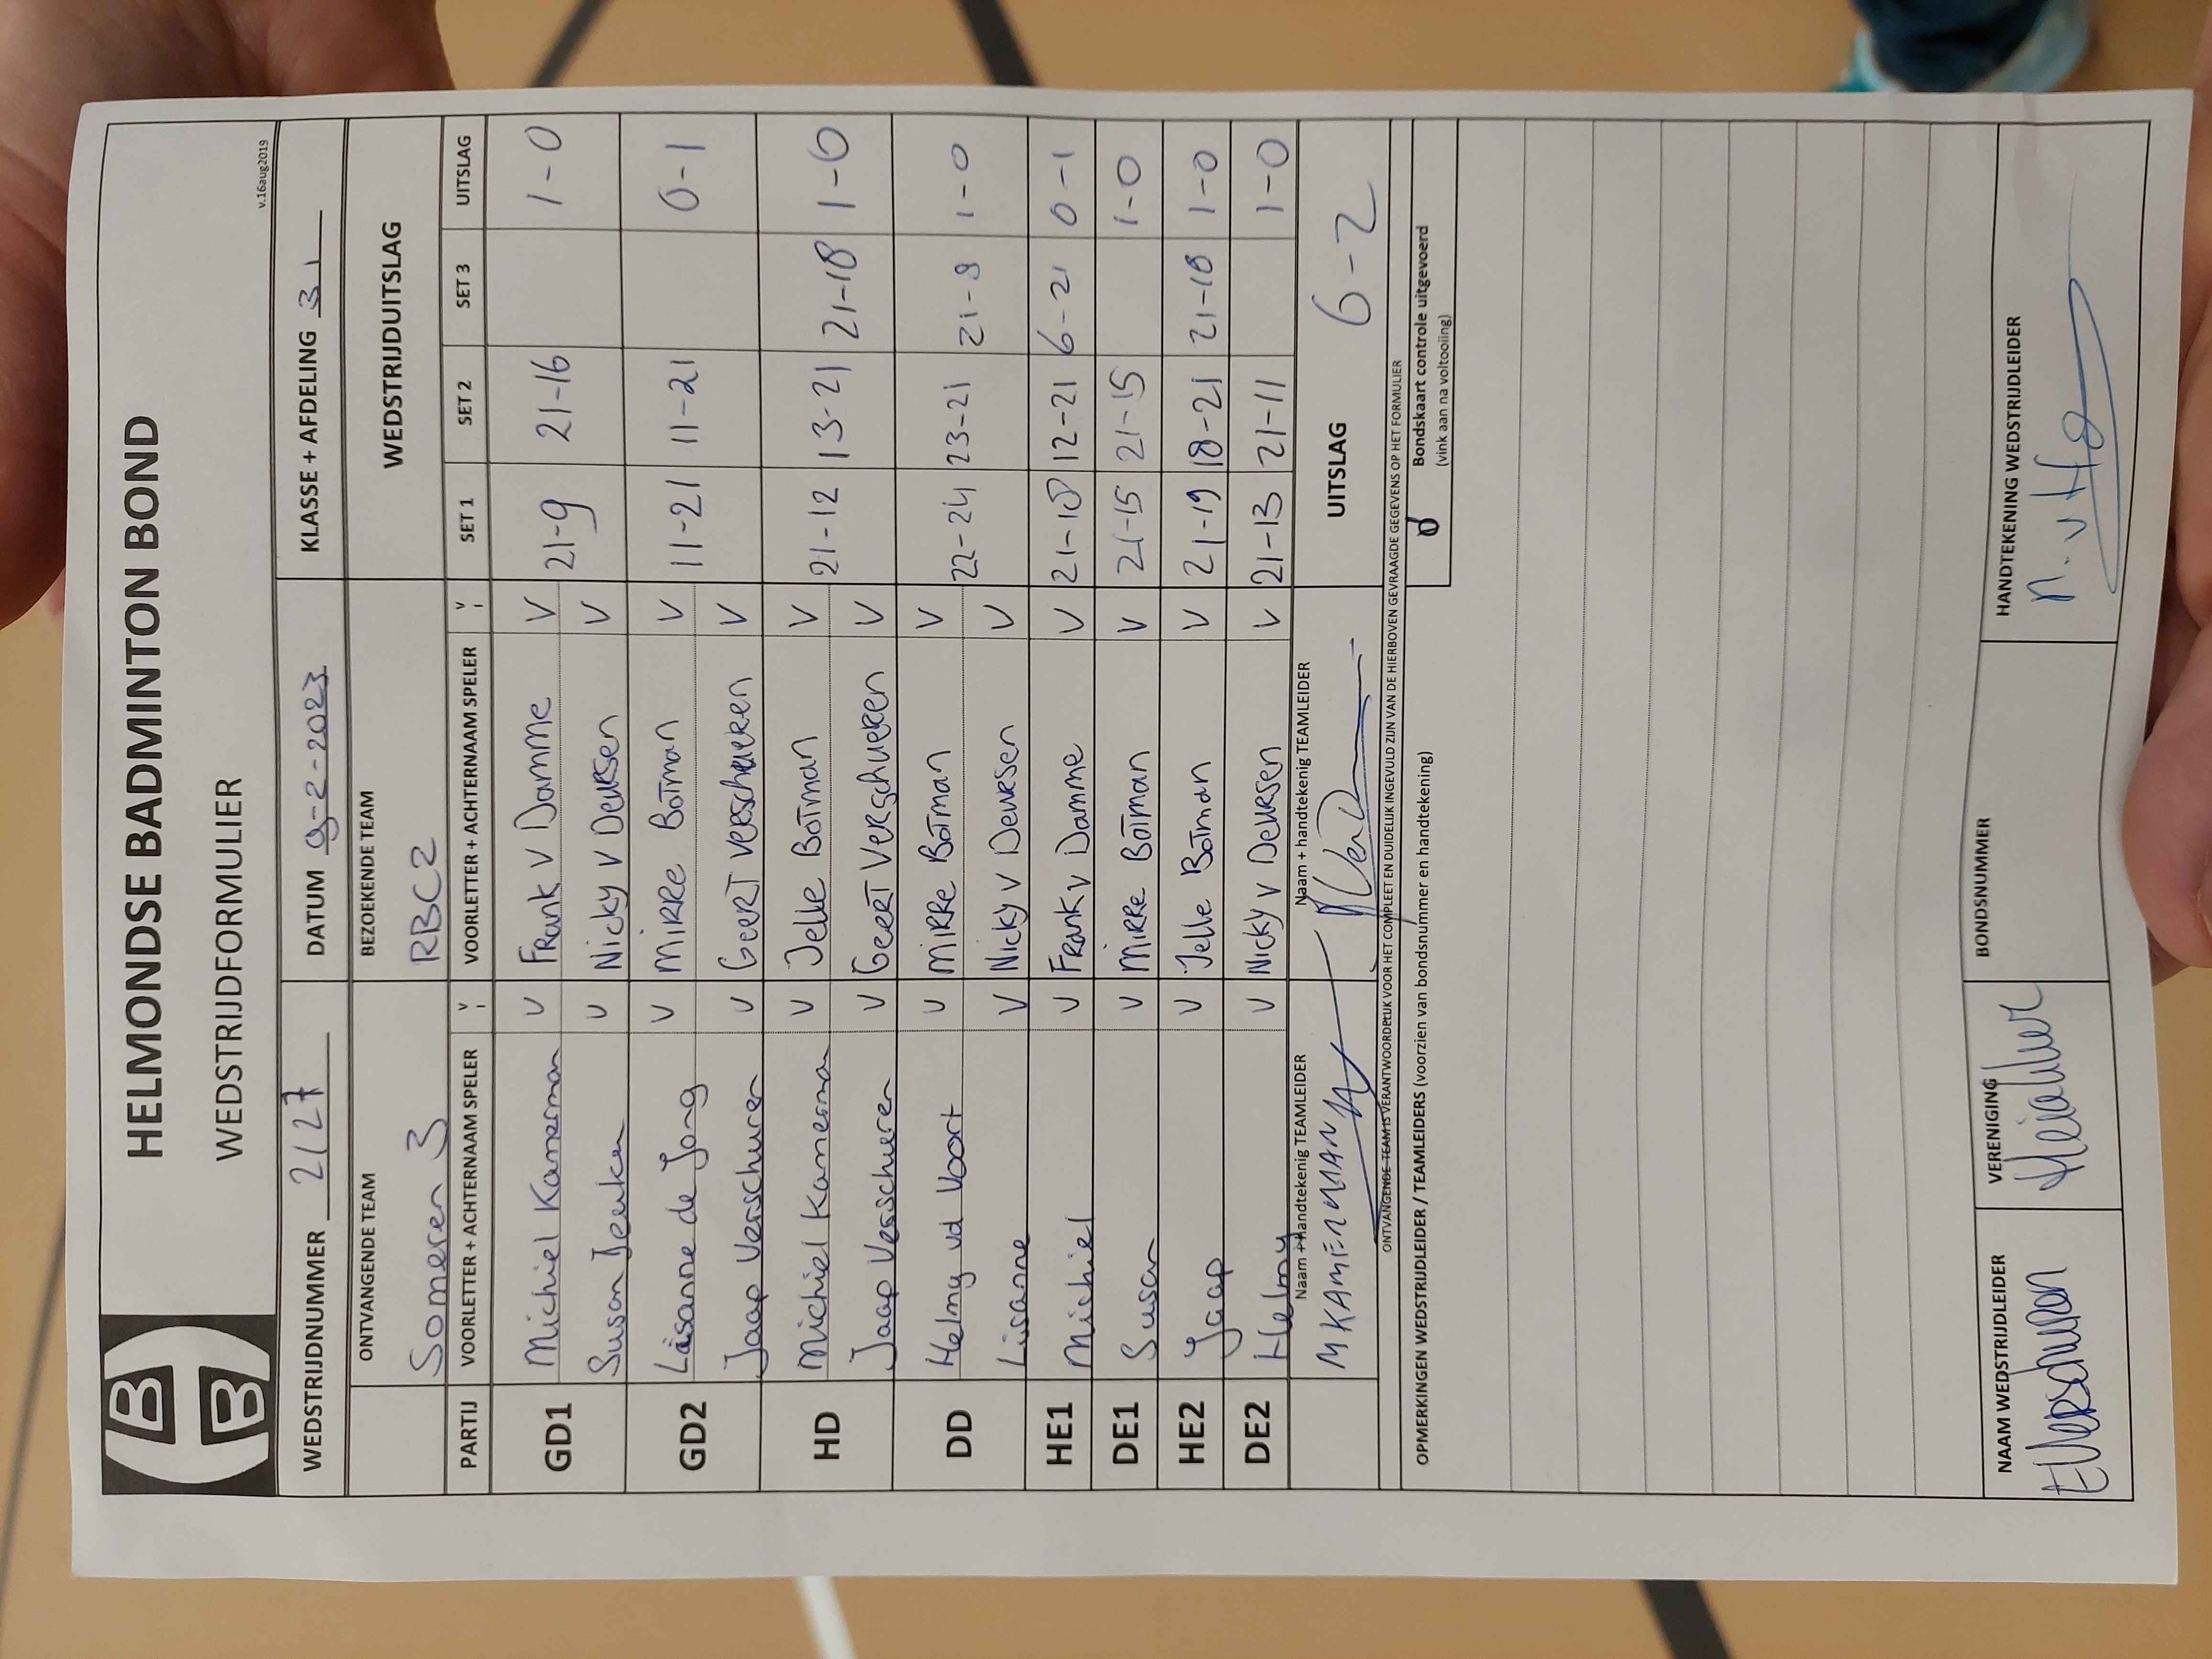 HELMONDSE BADMINTON BOND
WEDSTRIJDFORMULIER
v.16aug2019
WEDSTRIJDNUMMER 2127 DATUM 9-2-2023 KLASSE + AFDELING 31
ONTVANGENDE TEAM BEZOEKENDE TEAM WEDSTRIJDUITSLAG
Someren 3 RBC2
PARTIJ VOORLETTER + ACHTERNAAM SPELER V VOORLETTER + ACHTERNAAM SPELER V SET 1 SET 2 SET 3 UITSLAG
GD1 Michiel Kameman V Frank V Damme V 21-9 21-16 1-0
Susan V Nicky v Deursen V
GD2 Lisanne de Jong V Mirre Botman V 11-21 11-21 0-1
Jaap Verschuren V Geert Verschueren V
HD Michiel Kameman V Jelle Botman V 21-12 13-21 21-18 1-0
Jaap Verschuren V Geert Verschueren V
DD Helmy vd Voort V Mirre Botman V 22-24 23-21 21-9 1-0
Lisanne V Nicky v Deursen V
HE1 Michiel V Frank v Damme V 21-18 12-21 6-21 0-1
DE1 Susan V Mirre Botman V 21-15 21-15 1-0
HE2 Jaap V Jelle Botman V 21-19 18-21 21-18 1-0
DE2 Helmy V Nicky v Deursen V 21-13 21-11 1-0
Naam + handtekenig TEAMLEIDER Naam + handtekenig TEAMLEIDER UITSLAG 6-2
M KAMERMAN
ONTVANGENDE TEAM IS VERANTWOORDELIJK VOOR HET COMPLEET EN DUIDELIJK INGEVULD ZIJN VAN DE HIERBOVEN GEVRAAGDE GEGEVENS OP HET FORMULIER
OPMERKINGEN WEDSTRIJDLEIDER / TEAMLEIDERS (voorzien van bondsnummer en handtekening)
Bondskaart controle uitgevoerd
(vink aan na voltooiing)
NAAM WEDSTRIJDLEIDER VERENIGING BONDSNUMMER HANDTEKENING WEDSTRIJDLEIDER